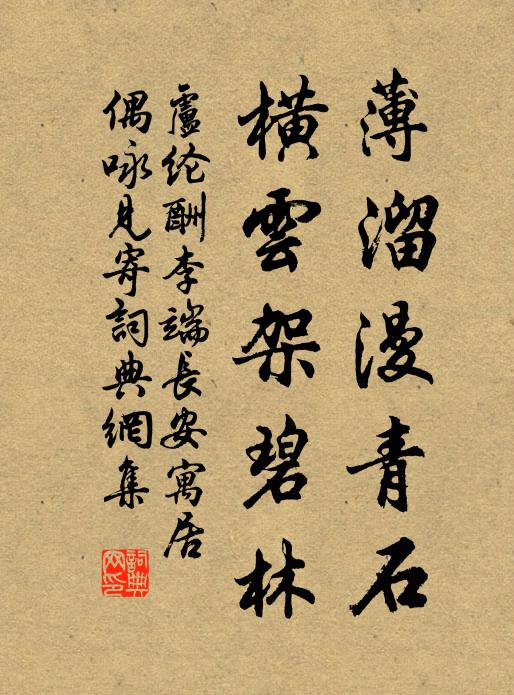 薄溜漫青石
橫雲架碧林
盧纶酬李端長安寓居
偶咏見寄詞典網集
詞典網印